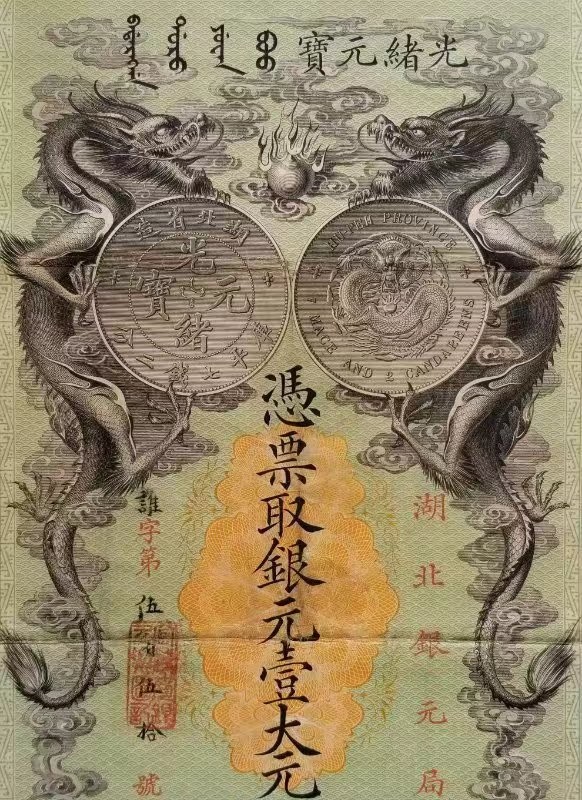 光緒元寶
湖北省造
光緒元寶
庫平七錢二分
HUPEH PROVINCE
7 MACE AND 2 CANDAREENS
湖北銀元局
憑票取銀元壹大元
誰字第伍百伍拾號